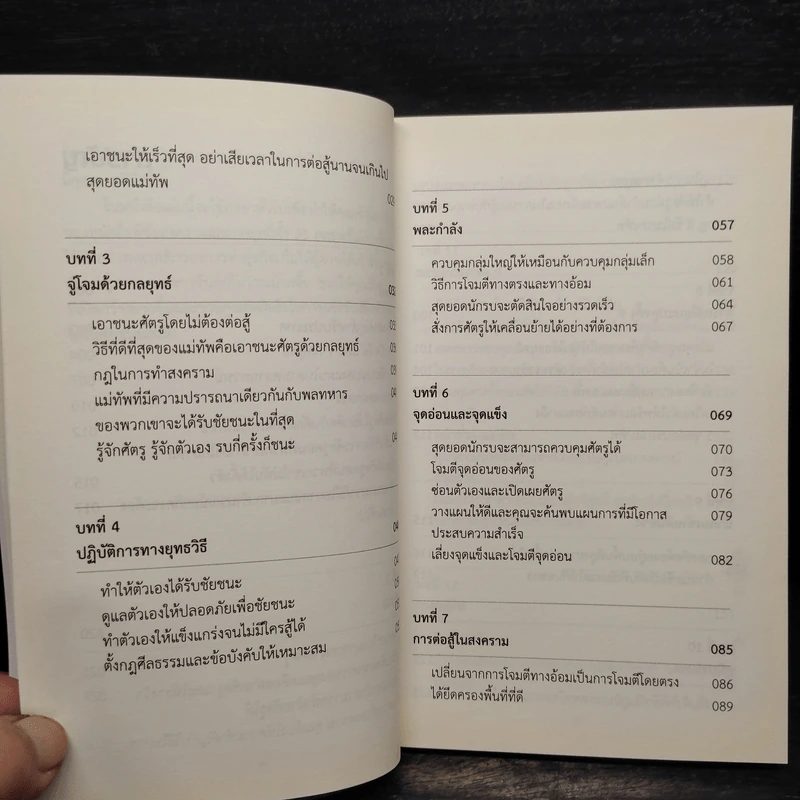 เอาชนะให้เร็วที่สุด อย่าเสียเวลาในการต่อสู้นานจนเกินไป
สุดยอดแม่ทัพ
บทที่ 3
จู่โจมด้วยกลยุทธ์
เอาชนะศัตรูโดยไม่ต้องต่อสู้
วิธีที่ดีที่สุดของแม่ทัพคือเอาชนะศัตรูด้วยกลยุทธ์
กฎในการทำสงคราม
แม่ทัพที่มีความปรารถนาเดียวกันกับพลทหาร
ของพวกเขาจะได้รับชัยชนะในที่สุด
รู้จักศัตรู รู้จักตัวเอง รบกี่ครั้งก็ชนะ
บทที่ 4
ปฏิบัติการทางยุทธวิธี
ทำให้ตัวเองได้รับชัยชนะ
ดูแลตัวเองให้ปลอดภัยเพื่อชัยชนะ
ทำตัวเองให้แข็งแกร่งจนไม่มีใครสู้ได้
ตั้งกฎศีลธรรมและข้อบังคับให้เหมาะสม
บทที่ 5
พละกำลัง 057
ควบคุมกลุ่มใหญ่ให้เหมือนกับควบคุมกลุ่มเล็ก 058
วิธีการโจมตีทางตรงและทางอ้อม 061
สุดยอดนักรบจะตัดสินใจอย่างรวดเร็ว 064
สั่งการศัตรูให้เคลื่อนย้ายได้อย่างที่ต้องการ 067
บทที่ 6
จุดอ่อนและจุดแข็ง 069
สุดยอดนักรบจะสามารถควบคุมศัตรูได้ 070
โจมตีจุดอ่อนของศัตรู 073
ซ่อนตัวเองและเปิดเผยศัตรู 076
วางแผนให้ดีและคุณจะค้นพบแผนการที่มีโอกาส 079
ประสบความสำเร็จ
เลี่ยงจุดแข็งและโจมตีจุดอ่อน 082
บทที่ 7
การต่อสู้ในสงคราม 085
เปลี่ยนจากการโจมตีทางอ้อมเป็นการโจมตีโดยตรง 086
ได้ยึดครองพื้นที่ที่ดี 089